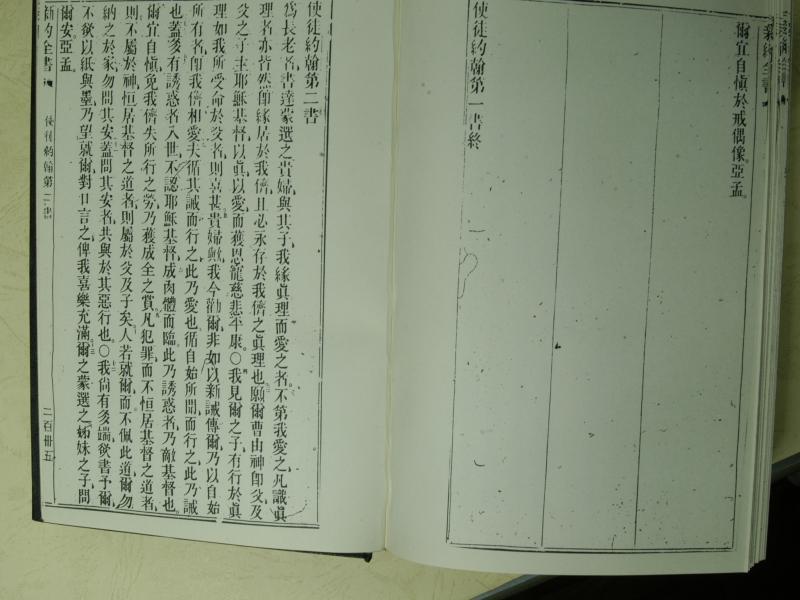 爾宜自愼於戒偶像亞孟
使徒約翰第一書終
使徒約翰第二書
爲長老者書達蒙選之貴婦與其子我緣眞理而愛之者不第我愛之凡識眞
理者亦皆然卽緣居於我儕且必永存於我儕之眞理也願爾曹由神卽父及
父之子主耶穌基督以眞以愛而獲恩寵慈悲平康○我見爾之子有行於眞
理如我所受命於父者則喜甚貴婦歟我今勸爾非如以新誡傳爾乃以自始
所有者卽我儕相愛夫循其誡而行之此乃愛也循自始所聞而行之此乃誡
也蓋多有誘惑者入世不認耶穌基督成肉體而臨此乃誘惑者乃敵基督也
爾宜自愼免我儕失所行之勞乃獲成全之賞凡犯罪而不恒居基督之道者
則不屬於神恒居基督之道者則屬於父及子矣人若就爾而不佩此道爾勿
納之於家勿問其安蓋問其安者共與於其惡行也○我尙有多端欲書予爾
不欲以紙與墨乃望就爾對口言之俾我喜樂充滿爾之蒙選之姊妹之子問
爾安亞孟
新約全書
使徒約翰第二書
二百卅五